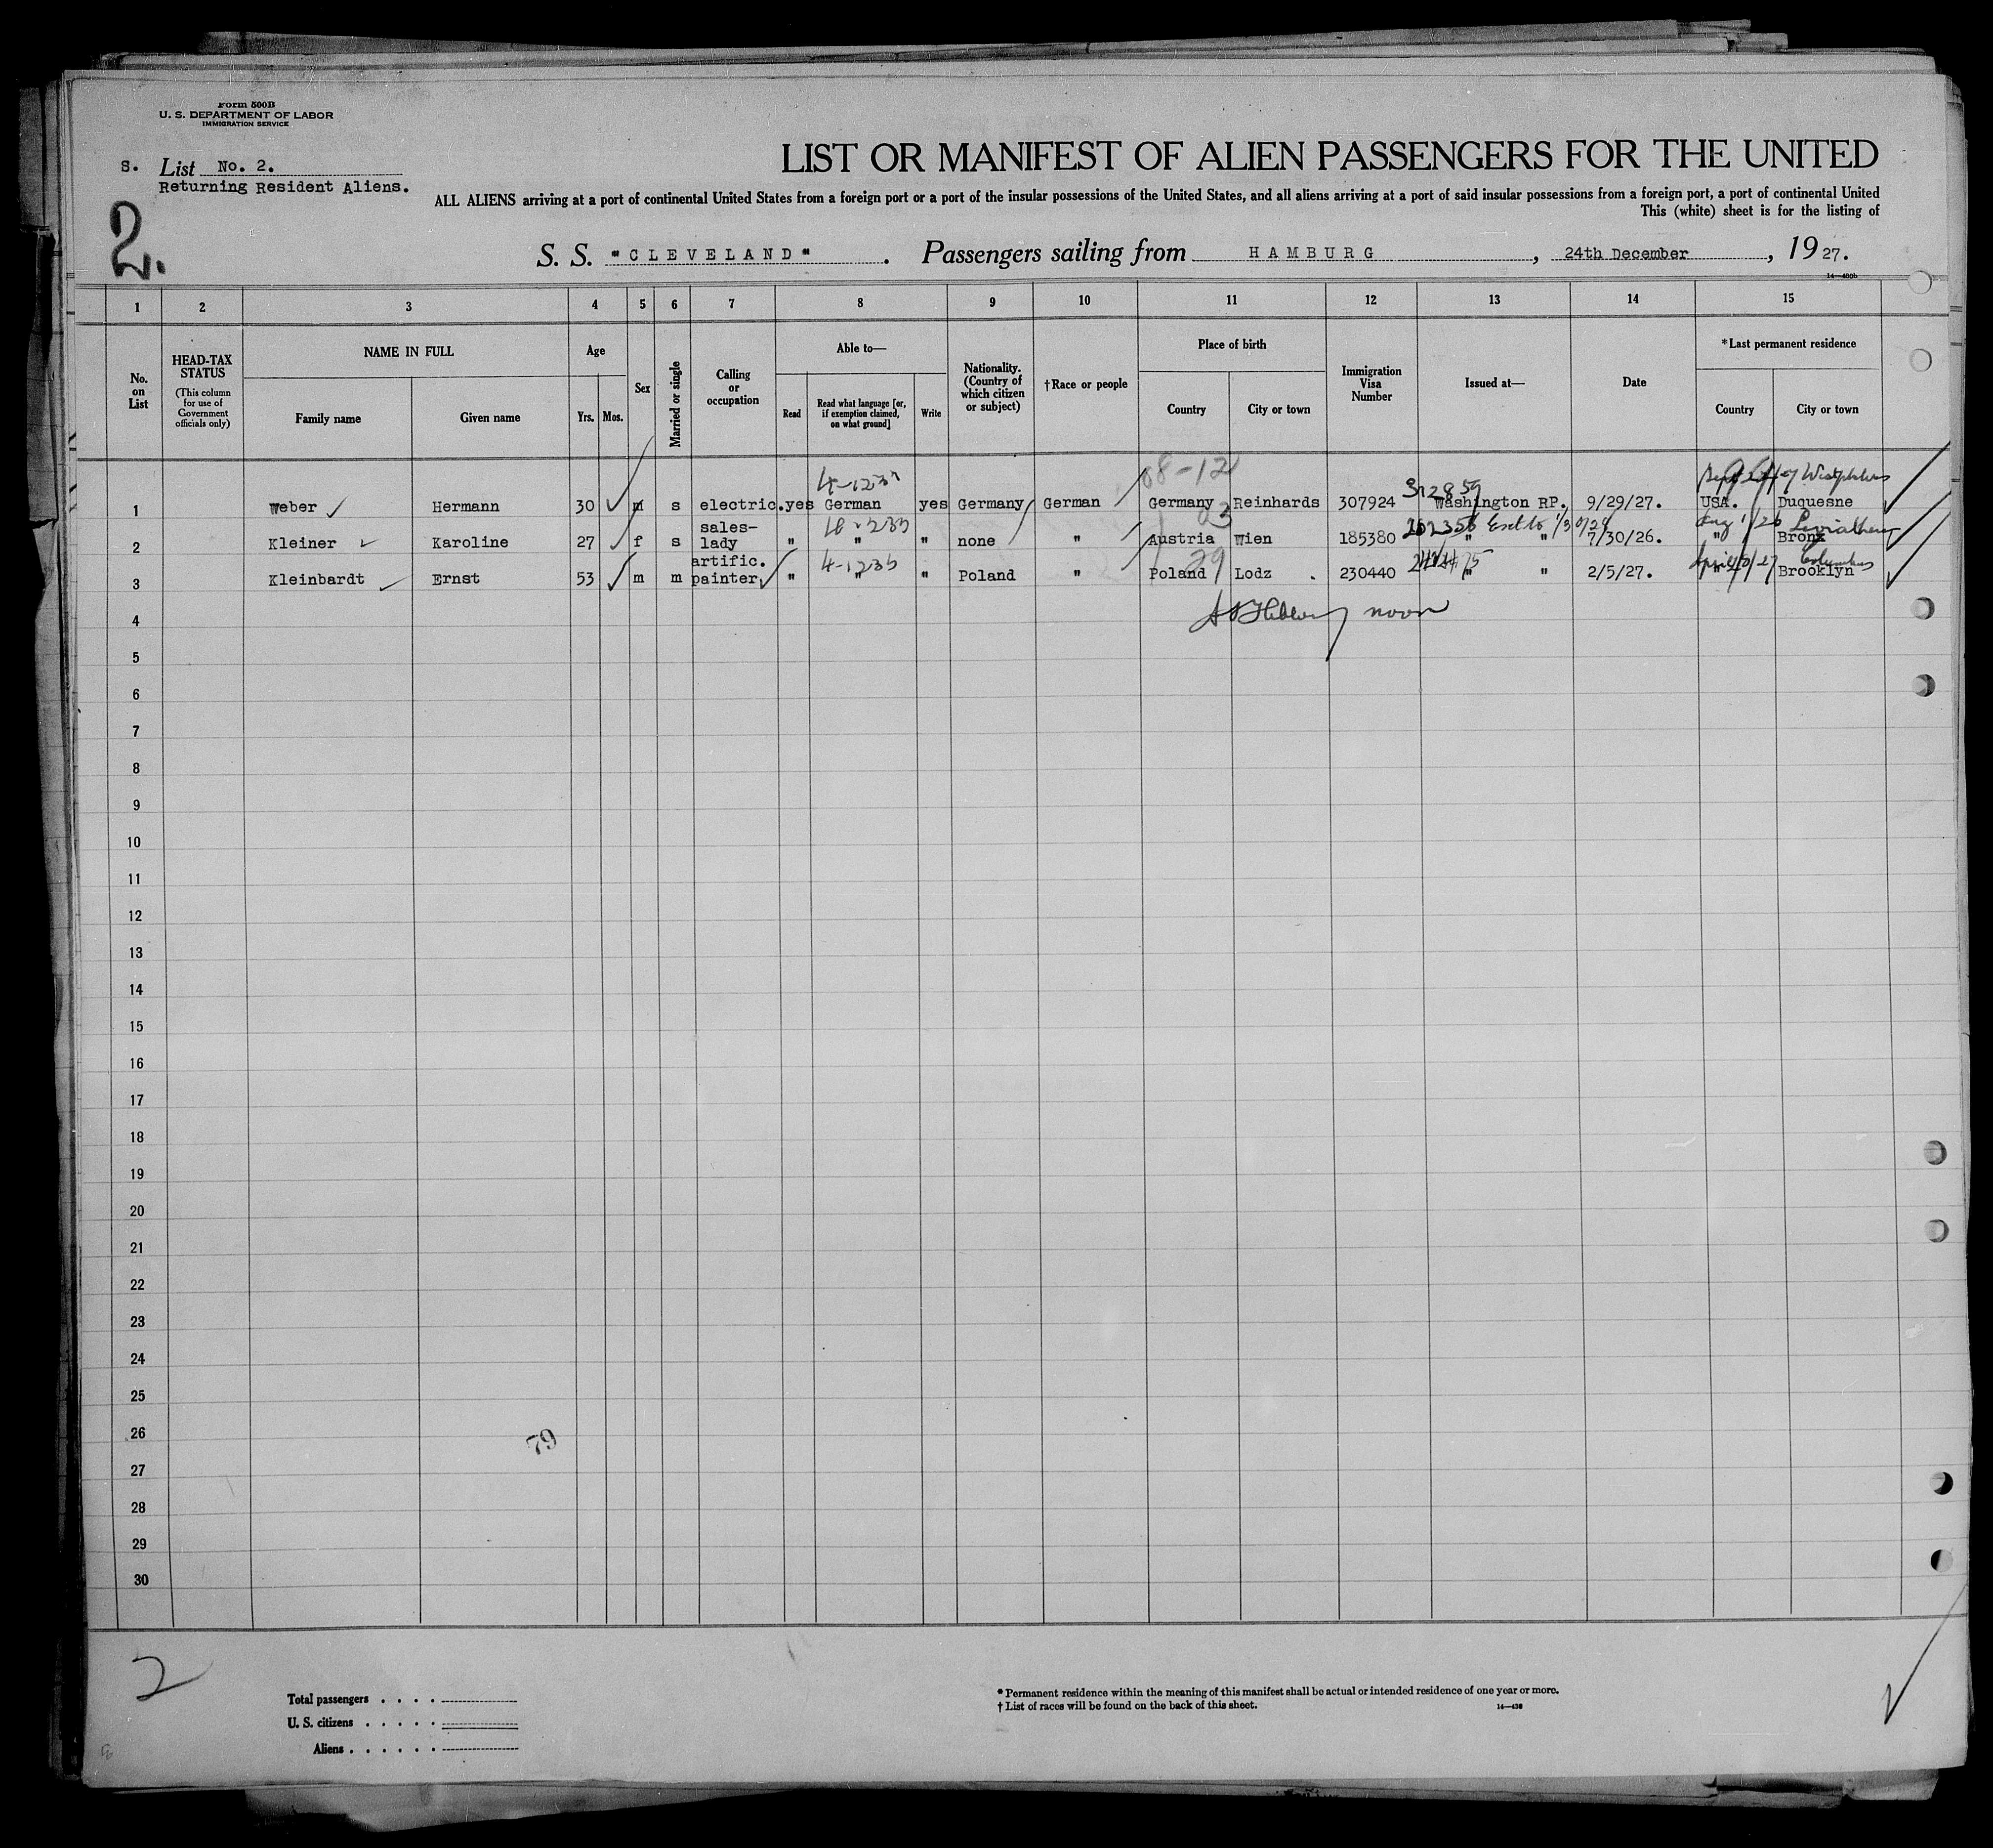 Form 500B
U. S. DEPARTMENT OF LABOR
IMMIGRATION SERVICE
S. List No. 2.
Returning Resident Aliens.
2.
LIST OR MANIFEST OF ALIEN PASSENGERS FOR THE UNITED
ALL ALIENS arriving at a port of continental United States from a foreign port or a port of the insular possessions of the United States, and all aliens arriving at a port of said insular possessions from a foreign port, a port of continental United
This (white) sheet is for the listing of
S. S. "CLEVELAND". Passengers sailing from HAMBURG, 24th December, 1927.
1 2 3 4 5 6 7 8 9 10 11 12 13 14 15
No. on List
HEAD-TAX STATUS
(This column for use of Government officials only)
NAME IN FULL
Family name Given name
Age
Yrs. Mos.
Sex
Married or single
Calling or occupation
Able to—
Read
Read what language [or, if exemption claimed, on what ground]
Write
Nationality. (Country of which citizen or subject)
†Race or people
Place of birth
Country City or town
Immigration Visa Number
Issued at—
Date
*Last permanent residence
Country City or town
08-12
312859
1 Weber Hermann 30 m s electric. yes German yes Germany German Germany Reinhards 307924 Washington RP. 9/29/27. USA. Duquesne
03
2 Kleiner Karoline 27 f s sales-lady " " " none " Austria Wien 185380 " " 7/30/26. " Bronx
29
3 Kleinhardt Ernst 53 m m artific. painter " " " Poland " Poland Lodz . 230440 " " 2/5/27. " Brooklyn
noon
4
5
6
7
8
9
10
11
12
13
14
15
16
17
18
19
20
21
22
23
24
25
26
79
27
28
29
30
2
Total passengers . . . .
U. S. citizens . . . . .
Aliens . . . . . .
* Permanent residence within the meaning of this manifest shall be actual or intended residence of one year or more.
† List of races will be found on the back of this sheet.
14—438